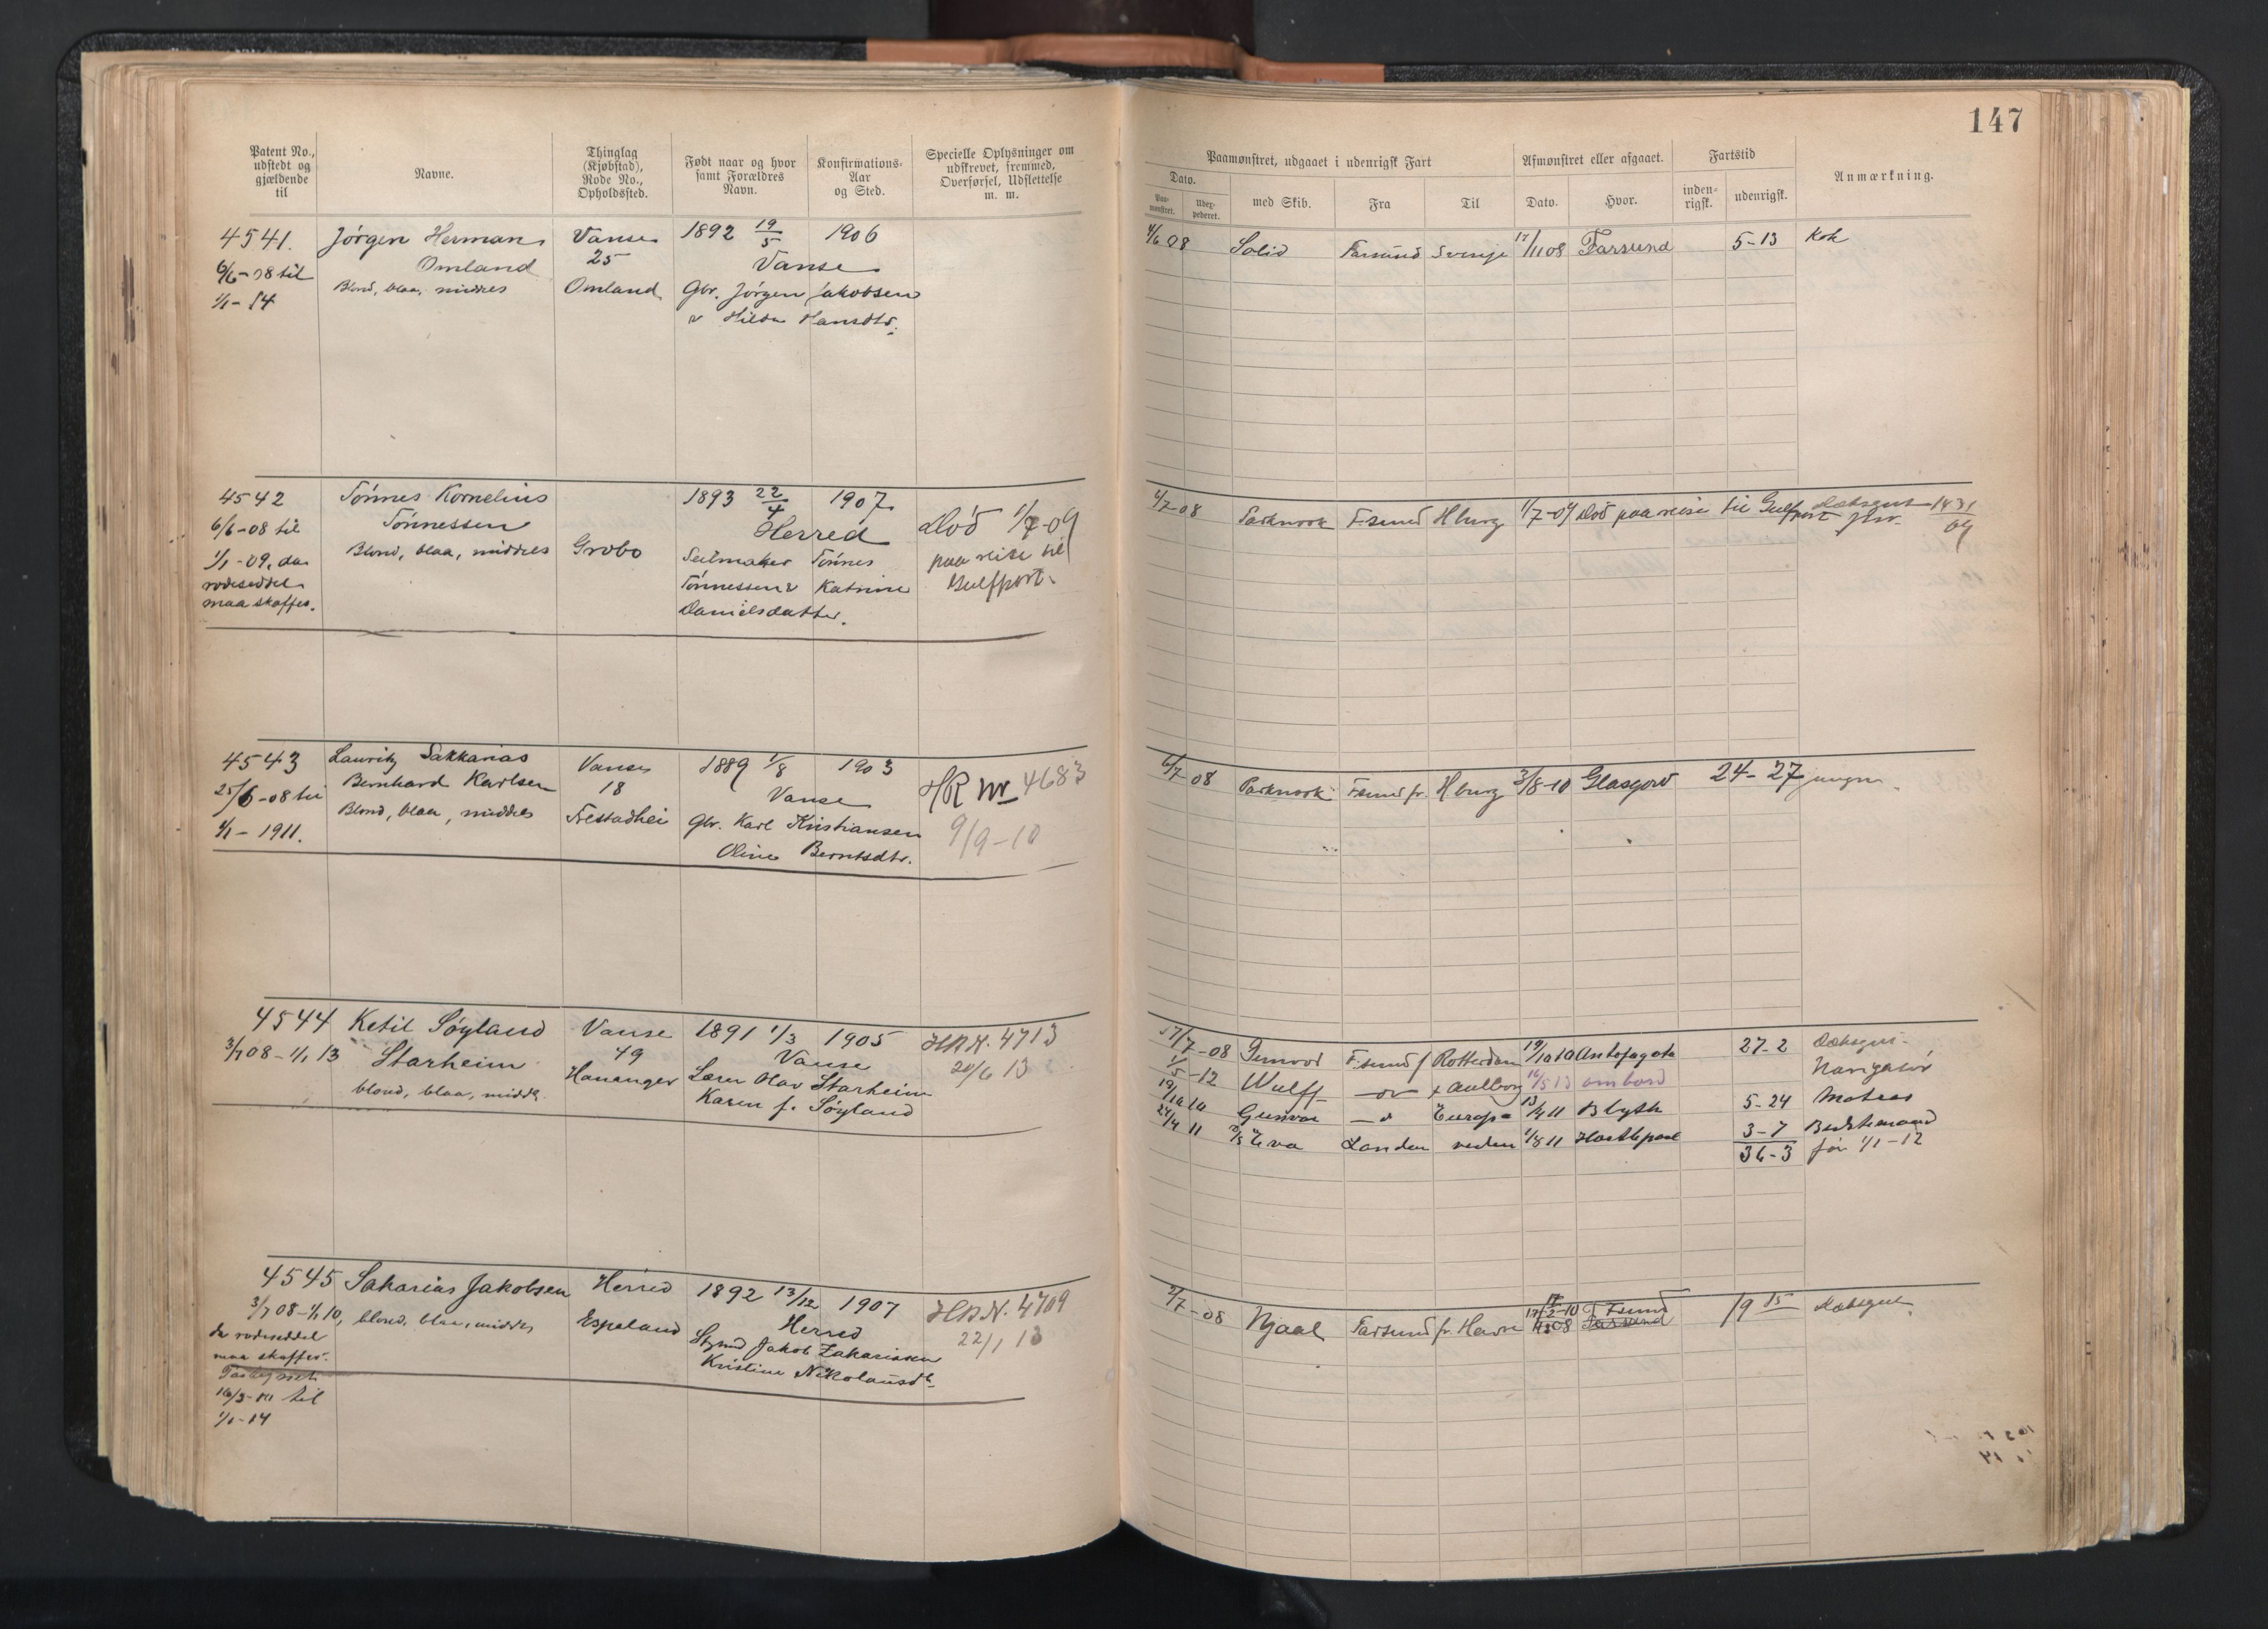 147
Patent No., udstedt og gjældende til
Navne.
Thinglag (Kjøbstad), Rode No., Opholdssted.
Født naar og hvor samt Forældres Navn.
Konfirmations-Aar og Sted.
Specielle Oplysninger om udskrevet, fremmed, Overførsel, Udslettelse m. m.
Paamønstret, udgaaet i udenrigsk Fart
Afmønstret eller afgaaet.
Fartstid
Anmærkning.
Dato.
Paa-mønstret.
Udex-pederet.
med Skib.
Fra
Til
Dato.
Hvor.
inden-rigsk.
udenrigsk.
4541. Jørgen Herman Vanse 1892 19/5 1906
6/6-08 til Omland 25 Vanse
1/1-14 Blond, blaa, middels Omland Gbr. Jørgen Jakobsen
Hilda Hansdtr.
4/6 08 Solid Farsund Sverige 17/11 08 Farsund 5-13 Kok
4542 Tönnes Kornelius 1893 22/4 1907
6/6-08 til Tönnessen Herred Död 1/7-09
1/1-09, da Blond, blaa, middels Grobo Seilmaker Tönnes paa reise til
rodeseddel Tönnessen & Katrine Gulfport.
maa skaffes. Danielsdatter.
6/7-08 Parknook F.sund Hburg 1/7-09 Död paa reise til Gulfport Dæksgut 1431/09
4543 Lauritz Sakkarias Vanse 1889 1/8 1903
25/6-08 til Bernhard Karlsen 18 Vanse HR Nr 4683
1/1-1911. Blond, blaa, middels Nestadhei Gbr. Karl Kristiansen 9/9-10
Oline Berntsdtr.
6/7-08 Parknook Fsund fr. Hburg 3/8-10 Glasgow 24-27 jungm
4544 Ketil Söyland Vanse 1891 1/3 1905 HR N. 4713
3/7 08-1/1 13 Starheim 49 Vanse 20/6 13
blond, blaa, midd. Hananger Lærer Olav Starheim
Karen f. Söyland
17/7-08 Gunvor F.sund f Rotterdam 19/10 10 Antofagata 27-2 Dæksgut
1/5-12 Wulff Aalborg 16/5 13 ombord Navigatör
19/10 10 Gunvor Europa 13/4 11 Blyth 5-24 Matros
24/4 11 Eva London 1/8 11 Hartlepool 3-7 Bestemand
36-3 för 1/1-12
4545 Sakarias Jakobsen Herred 1892 13/12 1907 HR N. 4709
3/7 08-1/1 10, blond, blaa, midd. Espeland Herred 22/1 13
da rodeseddel Jakob Zakariasen
maa skaffes. Kristine Nikolausdt.
16/3-10 til
1/1-14
7/7-08 Njaal Farsund fr. Havre 17/2-10 Fsund 19 15 Dæksgut
Farsund